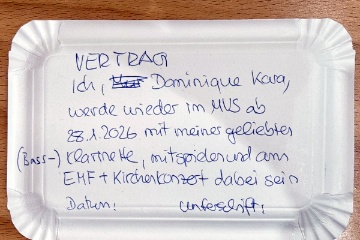 VERTRAG
Ich, Dominique Kara,
werde wieder im MVS ab
28.1.2026 mit meiner geliebten
(Bass-) Klarinette, mitspielen und am
EMF + Kirchenkonzert dabei sein
Datum: Unterschrift: